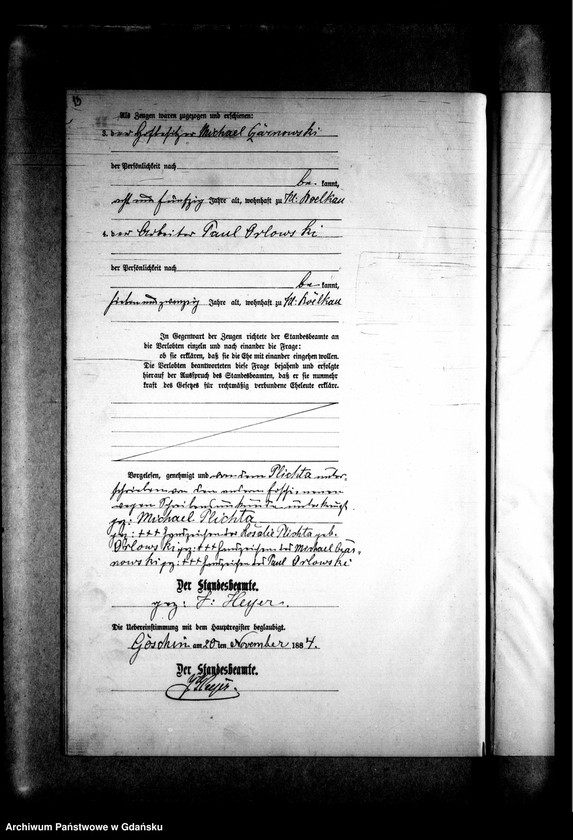 Als Zeugen waren zugezogen und erschienen:
3. der Hofbesitzer Michael Czarnowski
der Persönlichkeit nach
be kannt,
acht und fünfzig Jahre alt, wohnhaft zu Kl: Boelkau
4. der Arbeiter Paul Orlowski
der Persönlichkeit nach
be kannt,
sieben und zwanzig Jahre alt, wohnhaft zu Kl: Bölkau
In Gegenwart der Zeugen richtete der Standesbeamte an
die Verlobten einzeln und nach einander die Frage:
ob sie erklären, daß sie die Ehe mit einander eingehen wollen.
Die Verlobten beantworteten diese Frage bejahend und erfolgte
hierauf der Ausspruch des Standesbeamten, daß er sie nunmehr
kraft des Gesetzes für rechtmäßig verbundene Eheleute erkläre.
Vorgelesen, genehmigt und von dem Plichta unter-
schrieben von den andern Erschienenen
wegen Schreibensunkunde unterkreuzt.
gez: Michael Plichta
gez: +++ Handzeichen der Rosalie Plichta geb.
Orlowski gez: +++ Handzeichen des Michael Czar-
nowski gez: +++ Handzeichen des Paul Orlowski
Der Standesbeamte.
gez: F: Heyer.
Die Uebereinstimmung mit dem Hauptregister beglaubigt.
Göschin am 20 ten November 1884.
Der Standesbeamte.
Heyer
Archiwum Państwowe w Gdańsku